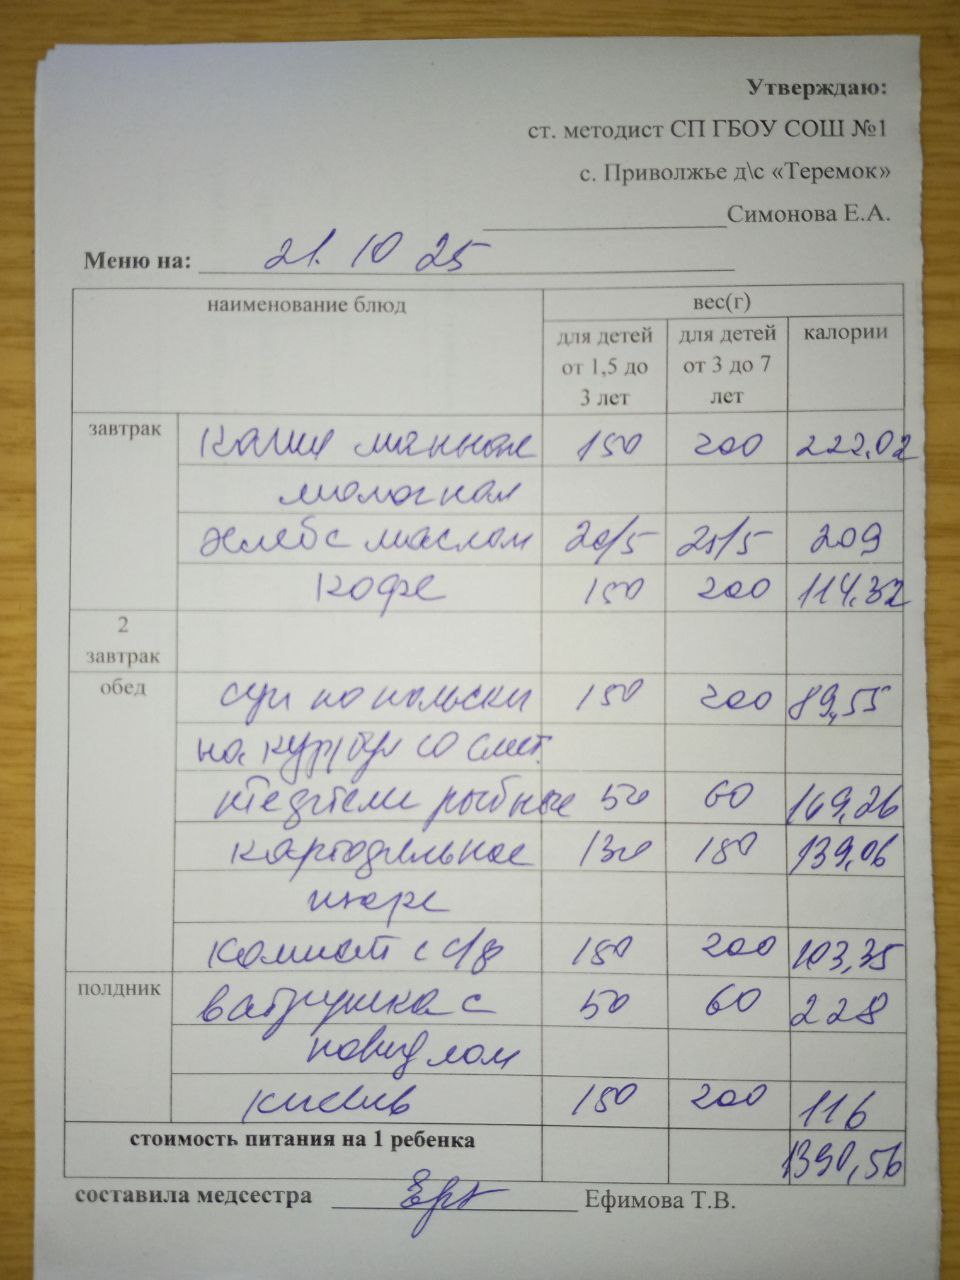 Утверждаю:
ст. методист СП ГБОУ СОШ №1
с. Приволжье д\с «Теремок»
Симонова Е.А.
Меню на: 21. 10 25
наименование блюд вес(г)
для детей от 1,5 до 3 лет для детей от 3 до 7 лет калории
завтрак Каша манная 150 200 222,02
молочная
Хлеб с маслом 20/5 25/5 209
Кофе 150 200 114,32
2 завтрак
обед суп по польски 150 200 89,55
на кур/бул со смет.
тефтели рыбные 50 60 169,26
картофельное 130 150 139,06
пюре
компот с с/ф 150 200 103,35
полдник ватрушка с 50 60 228
повидлом
кисель 150 200 116
стоимость питания на 1 ребенка 1390,56
составила медсестра Ефимова Т.В.